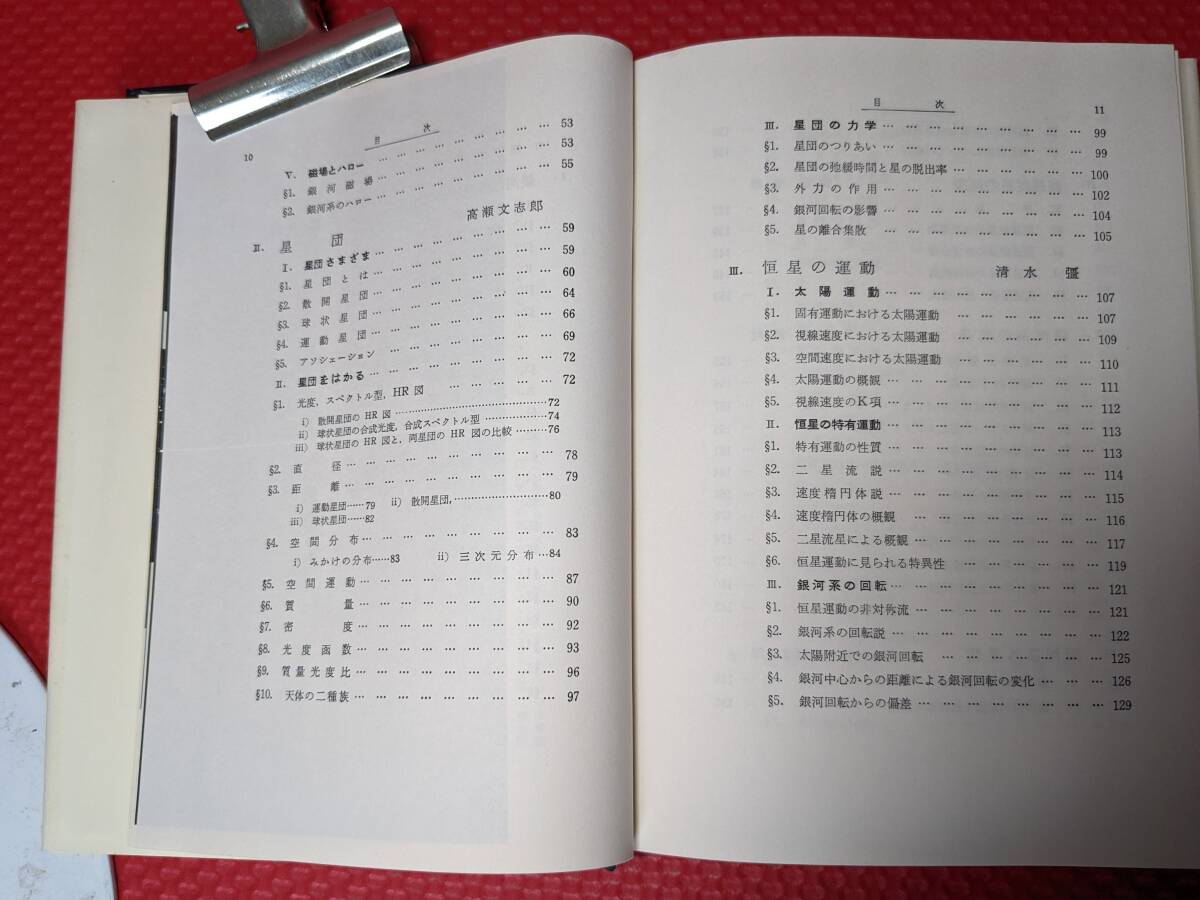 10
目 次
V. 磁場とハロー … … … … … … … 53
§1. 銀河磁場 … … … … … … … 53
§2. 銀河系のハロー … … … … … … … 55
II. 星 団 高瀬文志郎
I. 星団さまざま … … … … … … … 59
§1. 星団とは … … … … … … … 59
§2. 散開星団 … … … … … … … 60
§3. 球状星団 … … … … … … … 64
§4. 運動星団 … … … … … … … 66
§5. アソシェーション … … … … … … 69
II. 星団をはかる … … … … … … … 72
§1. 光度, スペクトル型, HR 図 … … … … 72
i) 散開星団の HR 図 ……………………………72
ii) 球状星団の合成光度, 合成スペクトル型 ………………74
iii) 球状星団の HR 図と, 両星団の HR 図の比較 ………76
§2. 直 径 … … … … … … … … 78
§3. 距 離 … … … … … … … … 79
i) 運動星団……79 ii) 散開星団,…………………………80
iii) 球状星団……82
§4. 空間分布 … … … … … … … 83
i) みかけの分布……83 ii) 三次元分布…84
§5. 空間運動 … … … … … … … 87
§6. 質 量 … … … … … … … 90
§7. 密 度 … … … … … … … 92
§8. 光度函数 … … … … … … … 93
§9. 質量光度比 … … … … … … … 96
§10. 天体の二種族 … … … … … … … 97
目 次
11
III. 星団の力学 … … … … … … … … … 99
§1. 星団のつりあい … … … … … … … … … 99
§2. 星団の弛緩時間と星の脱出率 … … … … … … 100
§3. 外力の作用 … … … … … … … … … 102
§4. 銀河回転の影響 … … … … … … … … 104
§5. 星の離合集散 … … … … … … … … 105
III. 恒星の運動 清水 彊
I. 太陽運動 … … … … … … … … … 107
§1. 固有運動における太陽運動 … … … … … … 107
§2. 視線速度における太陽運動 … … … … … … 109
§3. 空間速度における太陽運動 … … … … … … 110
§4. 太陽運動の概観 … … … … … … … … 111
§5. 視線速度のK項 … … … … … … … … 112
II. 恒星の特有運動 … … … … … … … … 113
§1. 特有運動の性質 … … … … … … … … 113
§2. 二星流説 … … … … … … … … … 114
§3. 速度楕円体説 … … … … … … … … 115
§4. 速度楕円体の概観 … … … … … … … … 116
§5. 二星流星による概観 … … … … … … … 117
§6. 恒星運動に見られる特異性 … … … … … … 119
III. 銀河系の回転 … … … … … … … … 121
§1. 恒星運動の非対称流 … … … … … … … 121
§2. 銀河系の回転説 … … … … … … … … 122
§3. 太陽附近での銀河回転 … … … … … … … 125
§4. 銀河中心からの距離による銀河回転の変化 … … … 126
§5. 銀河回転からの偏差 … … … … … … … 129